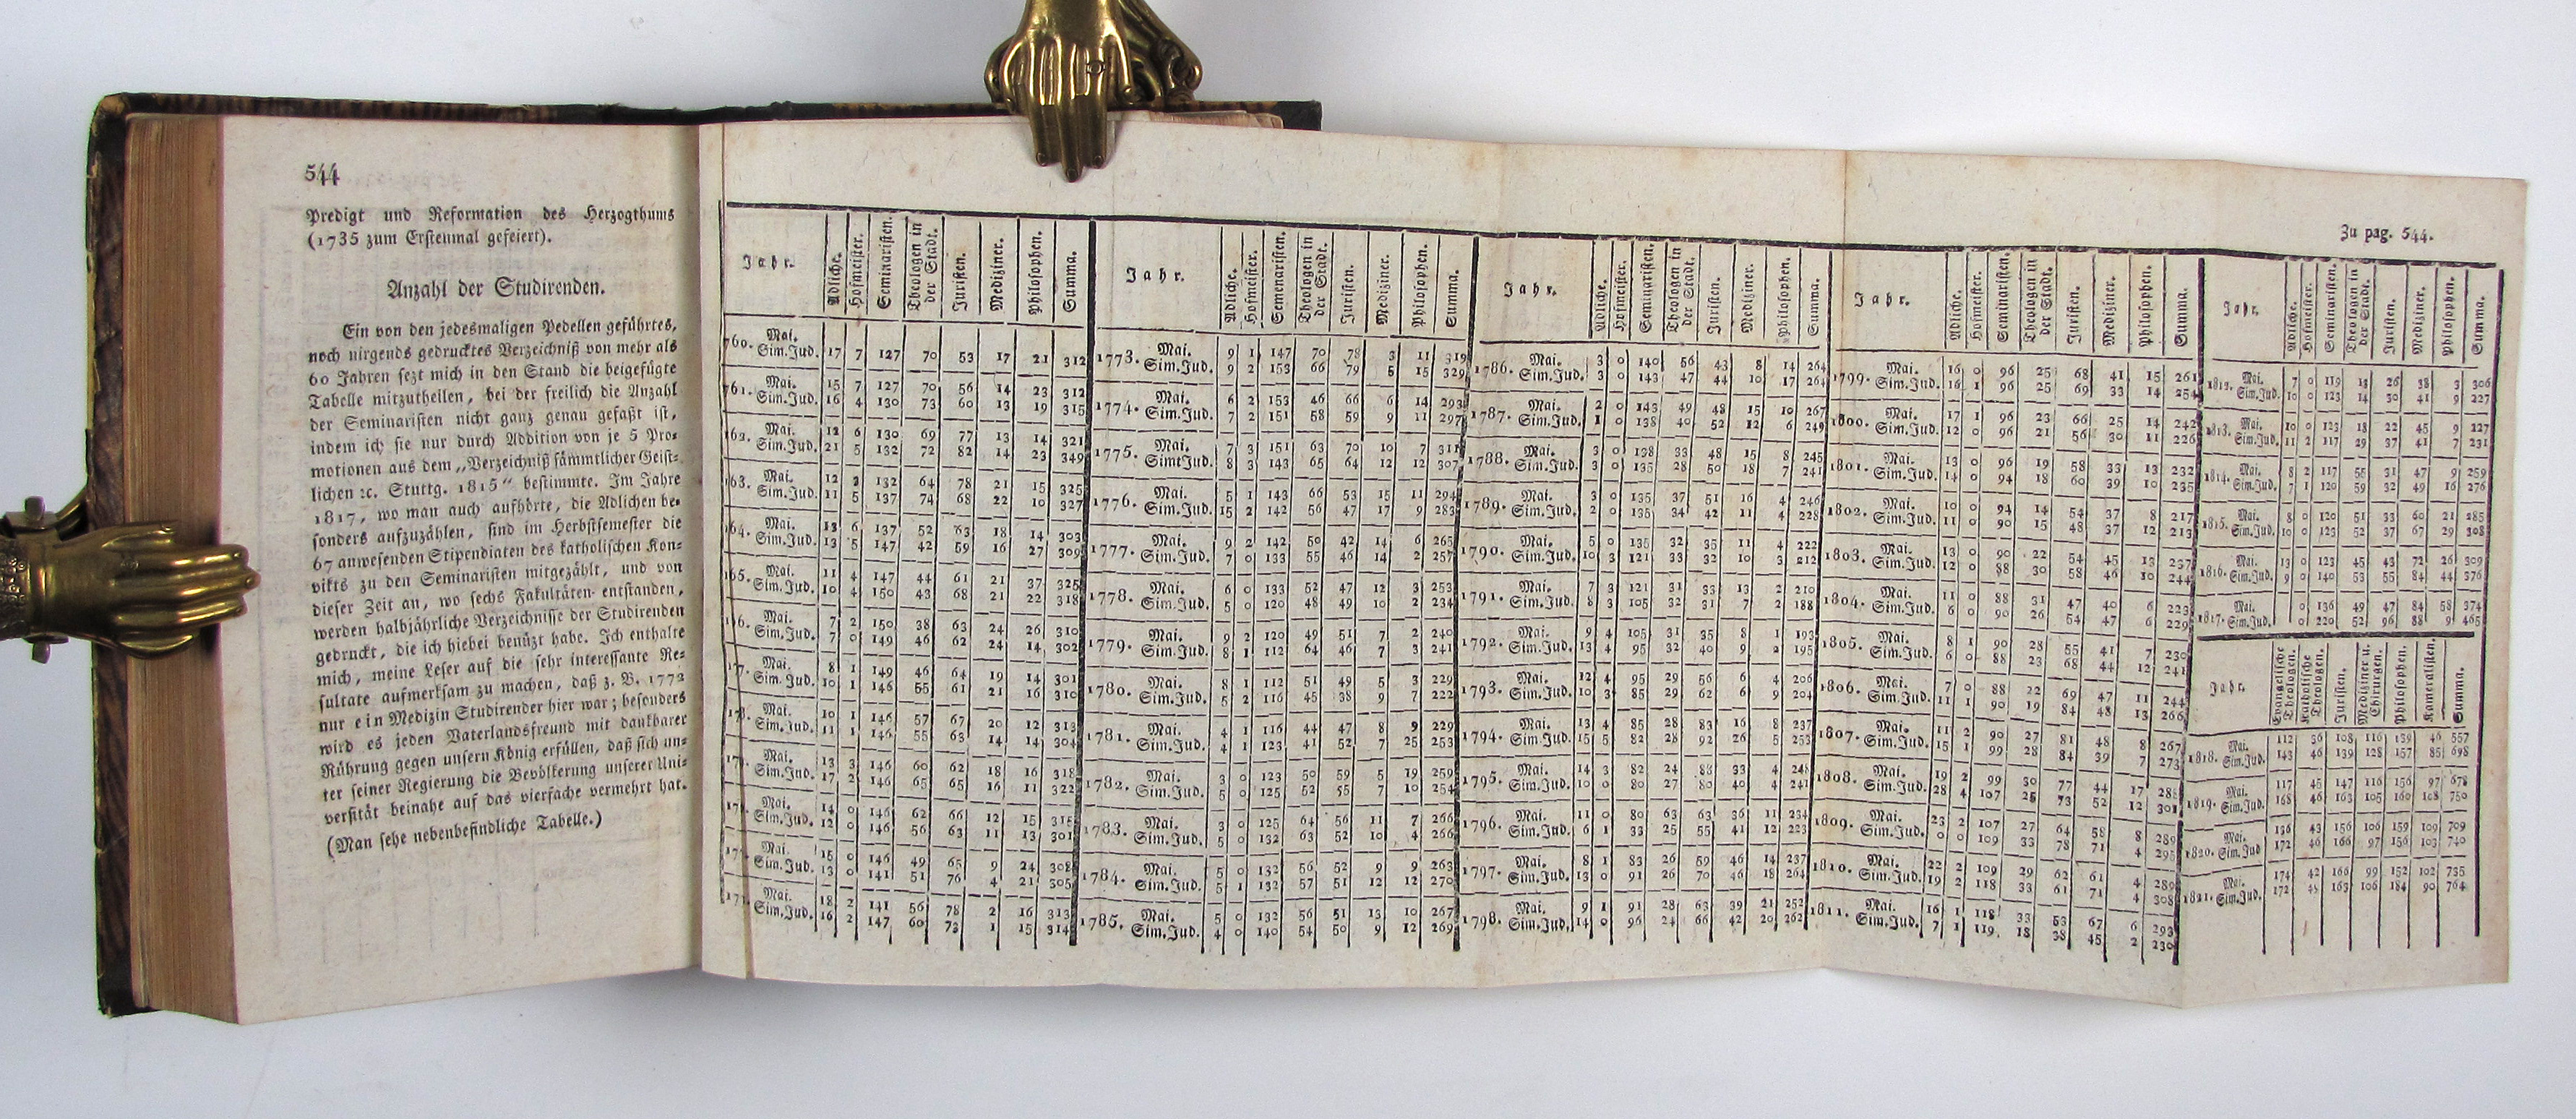 544
Predigt und Reformation des Herzogthums
(1735 zum Erstenmal gefeiert).
Anzahl der Studirenden.
Ein von den jedesmaligen Pedellen geführtes,
noch nirgends gedrucktes Verzeichniß von mehr als
60 Jahren sezt mich in den Stand die beigefügte
Tabelle mitzutheilen, bei der freilich die Anzahl
der Seminaristen nicht ganz genau gefaßt ist,
indem ich sie nur durch Addition von je 5 Pro-
motionen aus dem „Verzeichniß sämmtlicher Geist-
lichen ꝛc. Stuttg. 1815“ bestimmte. Im Jahre
1817, wo man auch aufhörte, die Adlichen be-
sonders aufzuzählen, sind im Herbstsemester die
67 anwesenden Stipendiaten des katholischen Kon-
vikts zu den Seminaristen mitgezählt, und von
dieser Zeit an, wo sechs Fakultäten entstanden,
werden halbjährliche Verzeichnisse der Studirenden
gedruckt, die ich hiebei benüzt habe. Ich enthalte
mich, meine Leser auf die sehr interessante Re-
sultate aufmerksam zu machen, daß z. B. 1772
nur ein Medizin Studirender hier war; besonders
wird es jeden Vaterlandsfreund mit dankbarer
Rührung gegen unsern König erfüllen, daß sich un-
ter seiner Regierung die Bevölkerung unserer Uni-
versität beinahe auf das vierfache vermehrt hat.
(Man sehe nebenbefindliche Tabelle.)
Zu pag. 544.
Jahr. Adliche. Hofmeister. Seminaristen. Theologen in der Stadt. Juristen. Mediziner. Philosophen. Summa.
760. Mai.
Sim.Jud. 17 7 127 70 53 17 21 312
761. Mai. 15 7 127 70 56 14 23 312
Sim.Jud. 16 4 130 73 60 13 19 315
762. Mai. 12 6 130 69 77 13 14 321
Sim.Jud. 21 5 132 72 82 14 23 349
Mai. 12 3 132 64 78 21 15 325
Sim.Jud. 11 5 137 74 68 22 10 327
Mai. 13 6 137 52 63 18 14 303
Sim.Jud. 13 5 147 42 59 16 27 309
Mai. 11 4 147 44 61 21 37 325
Sim.Jud. 10 4 150 43 68 21 22 318
Mai. 7 2 150 38 63 24 26 310
Sim.Jud. 7 0 149 46 62 24 14 302
Mai. 8 1 149 46 64 19 14 301
Sim.Jud. 10 1 146 55 61 21 16 310
Mai. 10 1 146 57 67 20 12 313
Sim.Jud. 11 1 146 55 63 14 14 304
Mai. 13 3 146 60 62 18 16 318
Sim.Jud. 17 2 146 65 65 16 11 322
Mai. 14 0 146 62 66 12 15 315
Sim.Jud. 12 0 146 56 63 11 13 301
Mai. 15 0 146 49 65 9 24 308
Sim.Jud. 13 0 141 51 76 4 21 305
Mai. 18 2 141 56 78 2 16 313
Sim.Jud. 16 2 147 60 73 1 15 314
Jahr. Adliche. Hofmeister. Semenaristen. Theologen in der Stadt. Juristen. Mediziner. Philosophen. Summa.
1773. Mai. 9 1 147 70 78 3 11 319
Sim.Jud. 9 2 153 66 79 5 15 329
1774. Mai. 6 2 153 46 66 6 14 293
Sim.Jud. 7 2 151 58 59 9 11 297
1775. Mai. 7 3 151 63 70 10 7 311
SimtJud. 8 3 143 65 64 12 12 307
1776. Mai. 5 1 143 66 53 15 11 294
Sim.Jud. 15 2 142 56 47 17 9 283
1777. Mai. 9 2 142 50 42 14 6 265
Sim.Jud. 7 0 133 55 46 14 2 257
1778. Mai. 6 0 133 52 47 12 3 253
Sim.Jud. 5 0 120 48 49 10 2 234
1779. Mai. 9 2 120 49 51 7 2 240
Sim.Jud. 8 1 112 64 46 7 3 241
1780. Mai. 8 1 112 51 49 5 3 229
Sim.Jud. 5 2 116 45 38 9 7 222
1781. Mai. 4 1 116 44 47 8 9 229
Sim.Jud. 4 1 123 41 52 7 25 253
1782. Mai. 3 0 123 50 59 5 19 259
Sim.Jud. 5 0 125 52 55 7 10 254
1783. Mai. 3 0 125 64 56 11 7 266
Sim.Jud. 5 0 132 63 52 10 4 266
1784. Mai. 5 0 132 56 52 9 9 263
Sim.Jud. 5 1 132 57 51 12 12 270
1785. Mai. 5 0 132 56 51 13 10 267
Sim.Jud. 4 0 140 54 50 9 12 269
Jahr. Adliche. Hofmeister. Seminaristen. Theologen in der Stadt. Juristen. Mediziner. Philosophen. Summa.
1786. Mai. 3 0 140 56 43 8 14 264
Sim.Jud. 3 0 143 47 44 10 17 264
1787. Mai. 2 0 143 49 48 15 10 267
Sim.Jud. 1 0 138 40 52 12 6 249
1788. Mai. 3 0 138 33 48 15 8 245
Sim.Jud. 3 0 135 28 50 18 7 241
1789. Mai. 3 0 135 37 51 16 4 246
Sim.Jud. 2 0 135 34 42 11 4 228
1790. Mai. 5 0 135 32 35 11 4 222
Sim.Jud. 10 3 121 33 32 10 3 212
1791. Mai. 7 3 121 31 33 13 2 210
Sim.Jud. 8 3 105 32 31 7 2 188
1792. Mai. 9 4 105 31 35 8 1 193
Sim.Jud. 13 4 95 32 40 9 2 195
1793. Mai. 12 4 95 29 56 6 4 206
Sim.Jud. 10 3 85 29 62 6 9 204
1794. Mai. 13 4 85 28 83 16 8 237
Sim.Jud. 15 5 82 28 92 26 5 253
1795. Mai. 14 3 82 24 88 33 4 248
Sim.Jud. 10 0 80 27 80 40 4 241
1796. Mai. 11 0 80 63 63 36 11 234
Sim.Jud. 6 1 33 25 55 41 12 223
1797. Mai. 8 1 83 26 59 46 14 237
Sim.Jud. 13 0 91 26 70 46 18 264
1798. Mai. 9 1 91 28 63 39 21 252
Sim.Jud. 14 0 96 24 66 42 20 262
Jahr. Adliche. Hofmeister. Seminaristen. Theologen in der Stadt. Juristen. Mediziner. Philosophen. Summa.
1799. Mai. 16 0 96 25 68 41 15 261
Sim.Jud. 16 1 96 25 69 33 14 254
1800. Mai. 17 1 96 23 66 25 14 242
Sim.Jud. 12 0 96 21 56 30 11 226
1801. Mai. 13 0 96 19 58 33 13 232
Sim.Jud. 14 0 94 18 60 39 10 235
1802. Mai. 10 0 94 14 54 37 8 217
Sim.Jud. 11 0 90 15 48 37 12 213
1803. Mai. 13 0 90 22 54 45 13 237
Sim.Jud. 12 0 88 30 58 46 10 244
1804. Mai. 11 0 88 31 47 40 6 223
Sim.Jud. 6 0 90 26 54 47 6 229
1805. Mai. 8 1 90 28 55 41 7 230
Sim.Jud. 6 0 88 23 68 44 12 241
1806. Mai. 7 0 88 22 69 47 11 244
Sim.Jud. 11 1 90 19 84 48 13 266
1807. Mai. 11 2 90 27 81 48 8 267
Sim.Jud. 15 1 99 28 84 39 7 273
1808. Mai. 19 2 99 30 77 44 17 288
Sim.Jud. 28 4 107 25 73 52 12 301
1809. Mai. 23 2 107 27 64 58 8 289
Sim.Jud. 0 0 109 33 78 71 4 295
1810. Mai. 22 2 109 29 62 61 4 289
Sim.Jud. 19 2 118 33 61 71 4 308
1811. Mai. 16 1 118 33 53 67 6 293
Sim.Jud. 7 1 119 18 38 45 2 230
Jahr. Adliche. Hofmeister. Seminaristen. Theologen in der Stadt. Juristen. Mediziner. Philosophen. Summa.
1812. Mai. 7 0 119 13 26 38 3 306
Sim.Jud. 10 0 123 14 30 41 9 227
1813. Mai. 10 0 123 18 22 45 9 227
Sim.Jud. 11 2 117 29 37 41 7 231
1814. Mai. 8 2 117 55 31 47 9 259
Sim.Jud. 7 1 120 59 32 49 16 276
1815. Mai. 8 0 120 51 33 60 21 285
Sim.Jud. 10 0 123 52 37 67 29 308
1816. Mai. 13 0 123 45 43 72 26 309
Sim.Jud. 9 0 140 53 55 84 44 376
1817. Mai. 0 136 49 47 84 58 374
Sim.Jud. 0 220 52 96 88 9 465
Jahr. Evangelische Theologen. Katholische Theologen. Juristen. Mediziner u. Chirurgen. Philosophen. Kameralisten. Summa.
1818. Mai. 112 36 108 116 139 46 557
Sim.Jud. 143 46 139 128 157 85 698
1819. Mai. 117 45 147 116 156 97 678
Sim.Jud. 168 46 163 105 160 108 750
1820. Mai. 136 43 156 106 159 109 709
Sim.Jud 172 46 166 97 156 103 740
1821. Mai. 174 42 166 99 152 102 735
Sim.Jud. 172 48 163 106 184 90 764